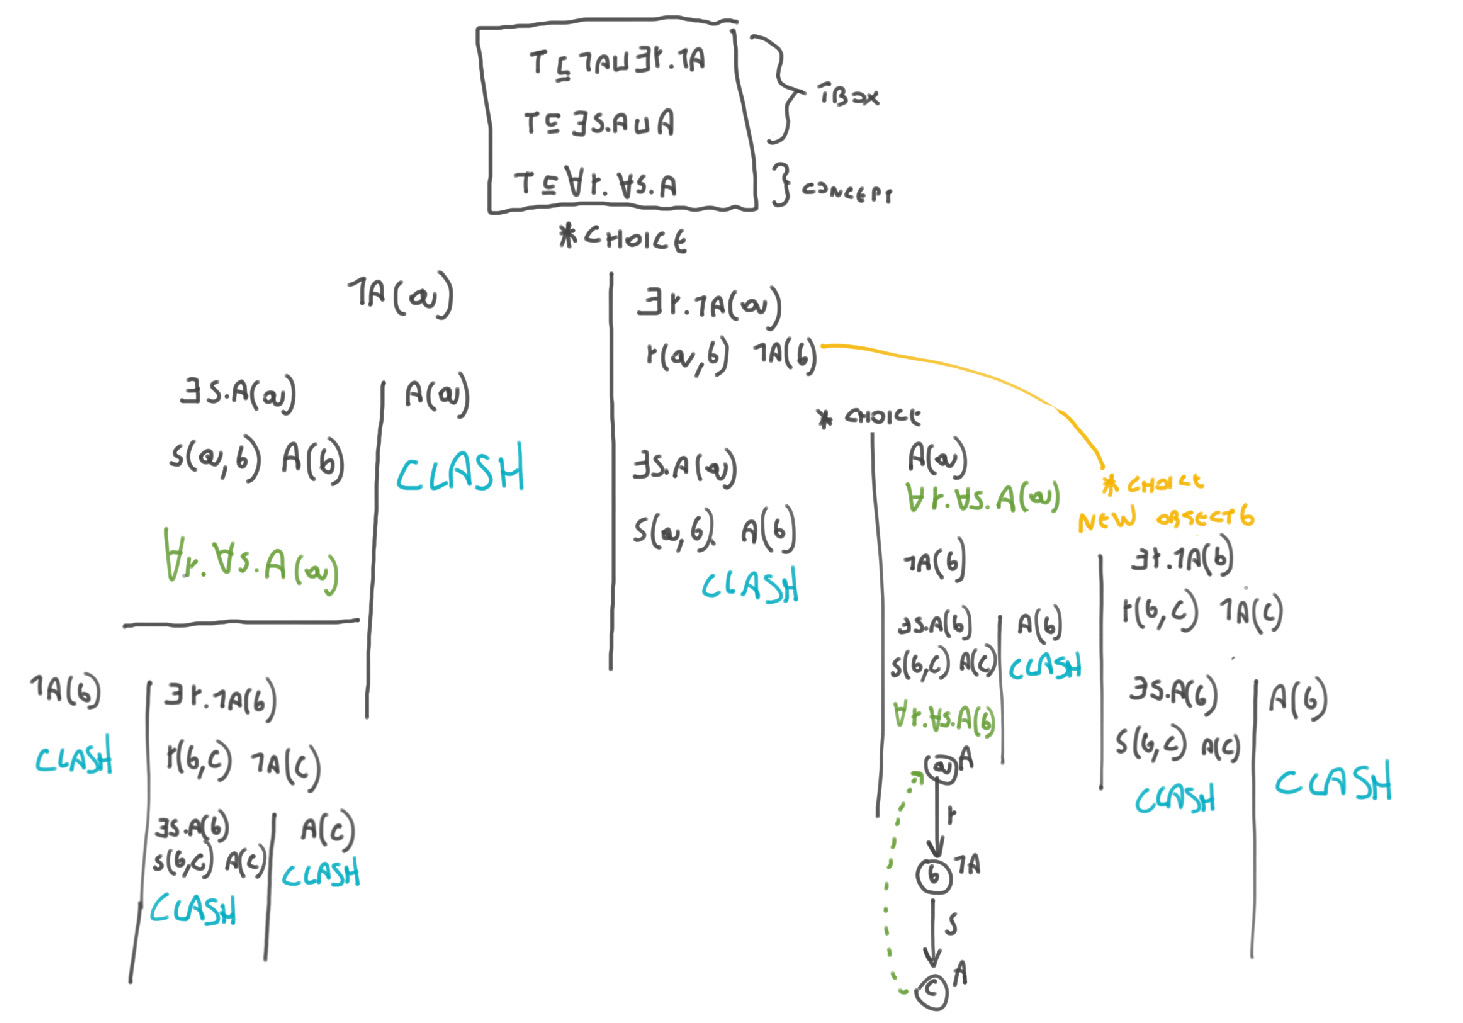 ⊤ ⊑ ¬A⊔∃r.¬A
⊤ ⊑ ∃s.A⊔A
TBOX
⊤ ⊑ ∀r. ∀s.A
CONCEPT
* CHOICE
¬A(a)
∃s.A(a)
s(a,b) A(b)
∀r. ∀s.A(a)
A(a)
CLASH
¬A(b)
CLASH
∃r.¬A(b)
r(b,c) ¬A(c)
∃s.A(b)
s(b,c) A(c)
CLASH
A(c)
CLASH
∃r.¬A(a)
r(a,b) ¬A(b)
∃s.A(a)
s(a,b). A(b)
CLASH
* CHOICE
A(a)
∀r.∀s.A(a)
¬A(b)
∃s.A(b)
s(b,c) A(c)
∀r.∀s.A(b)
A(b)
CLASH
a A
r
b ¬A
s
c A
* CHOICE
NEW OBJECT b
∃r.¬A(b)
r(b,c) ¬A(c)
∃s.A(b)
s(b,c) A(c)
CLASH
A(b)
CLASH